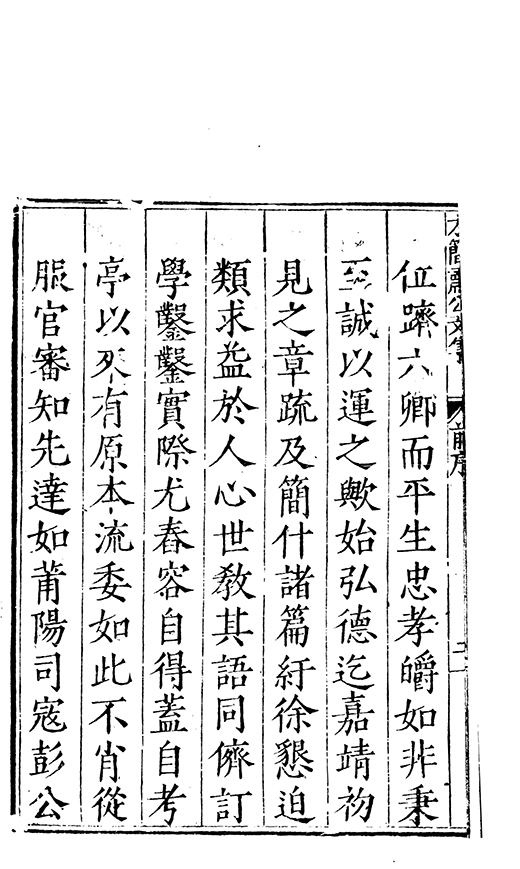 位躋六卿而平生忠孝皭如非秉
至誠以運之歟始弘德迄嘉靖初
見之章疏及簡什諸篇紆徐懇迫
類求益於人心世敎其語同儕訂
學鑿鑿實際尤舂容自得蓋自考
亭以來有原本流委如此不肖從
服官審知先達如莆陽司寇彭公
簡肅公文集
前序